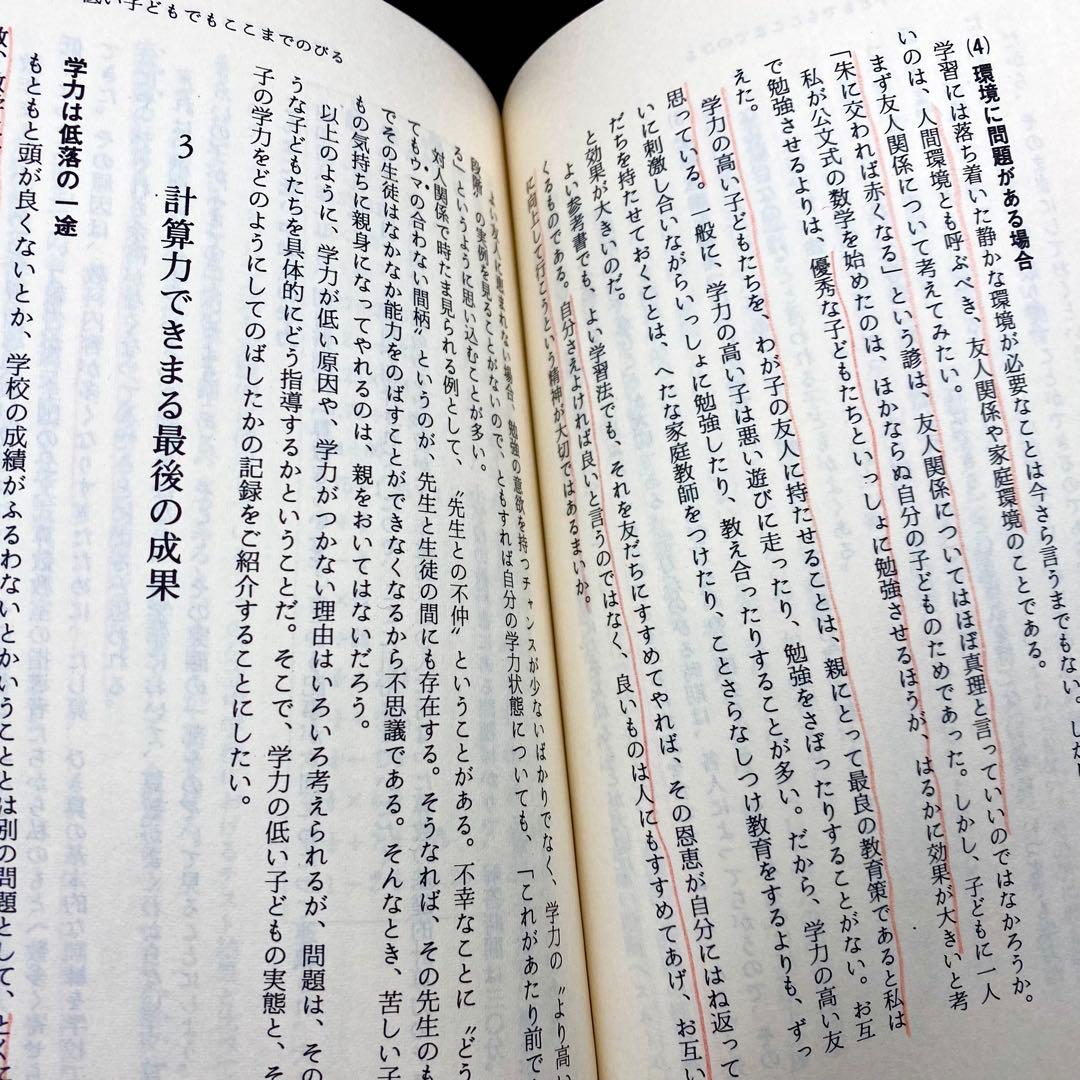 (4) 環境に問題がある場合
学習には落ち着いた静かな環境が必要なことは今さら言うまでもない。しかし
いのは、人間環境とも呼ぶべき、友人関係や家庭環境のことである。
まず友人関係について考えてみたい。
「朱に交われば赤くなる」という諺は、友人関係についてはほぼ真理と言っていいのではなかろうか。
私が公文式の数学を始めたのは、ほかならぬ自分の子どものためであった。しかし、子どもに一人
で勉強させるよりは、優秀な子どもたちといっしょに勉強させるほうが、はるかに効果が大きいと考
えた。
学力の高い子どもたちを、わが子の友人に持たせることは、親にとって最良の教育策であると私は
思っている。一般に、学力の高い子は悪い遊びに走ったり、勉強をさぼったりすることがない。お互
いに刺激し合いながらいっしょに勉強したり、教え合ったりすることが多い。だから、学力の高い友
だちを持たせておくことは、へたな家庭教師をつけたり、ことさらなしつけ教育をするよりも、ずっ
と効果が大きいのだ。
よい参考書でも、よい学習法でも、それを友だちにすすめてやれば、その恩恵が自分にはね返って
くるものである。自分さえよければ良いと言うのではなく、良いものは人にもすすめてあげ、お互い
に向上して行こうという精神が大切ではあるまいか。
よい友人に恵まれない場合、勉強の意欲を持つチャンスが少ないばかりでなく、学力の〝より高い
段階〟の実例を見ることがないので、ともすれば自分の学力状態についても、「これがあたり前で
る」というように思い込むことが多い。
対人関係で時たま見られる例として、〝先生との不仲〟ということがある。不幸なことに〝どう
てもウマの合わない間柄〟というのが、先生と生徒の間にも存在する。そうなれば、その先生のも
でその生徒はなかなか能力をのばすことができなくなるから不思議である。そんなとき、苦しい子
もの気持ちに親身になってやれるのは、親をおいてはないだろう。
以上のように、学力が低い原因や、学力がつかない理由はいろいろ考えられるが、問題は、その
うな子どもたちを具体的にどう指導するかということだ。そこで、学力の低い子どもの実態と、そ
子の学力をどのようにしてのばしたかの記録をご紹介することにしたい。
3 計算力できまる最後の成果
学力は低落の一途
もともと頭が良くないとか、学校の成績がふるわないとかいうこととは別の問題として、とくに
低い子どもでもここまでのびる